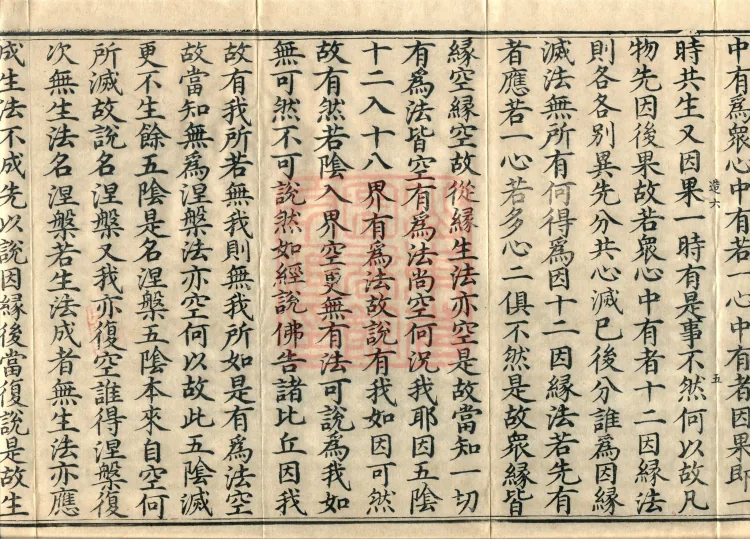 中有爲衆心中有若一心中有者因果即一
時共生又因果一時有是事不然何以故凡
物先因後果故若衆心中有者十二因緣法
則各各別異先分共心滅已後分誰爲因緣
滅法無所有何得爲因十二因緣法若先有
者應若一心若多心二俱不然是故衆緣皆
緣空緣空故從緣生法亦空是故當知一切
有爲法皆空有爲法尚空何況我耶因五陰
十二入十八界有爲法故說有我如因可然
故有然若陰入界空更無有法可說爲我如
無可然不可說然如經說佛告諸比丘因我
故有我所若無我則無我所如是有爲法空
故當知無爲涅槃法亦空何以故此五陰滅
更不生餘五陰是名涅槃五陰本來自空何
所滅故說名涅槃又我亦復空誰得涅槃復
次無生法名涅槃若生法成者無生法亦應
成生法不成先以說因緣後當復說是故生
造六
五